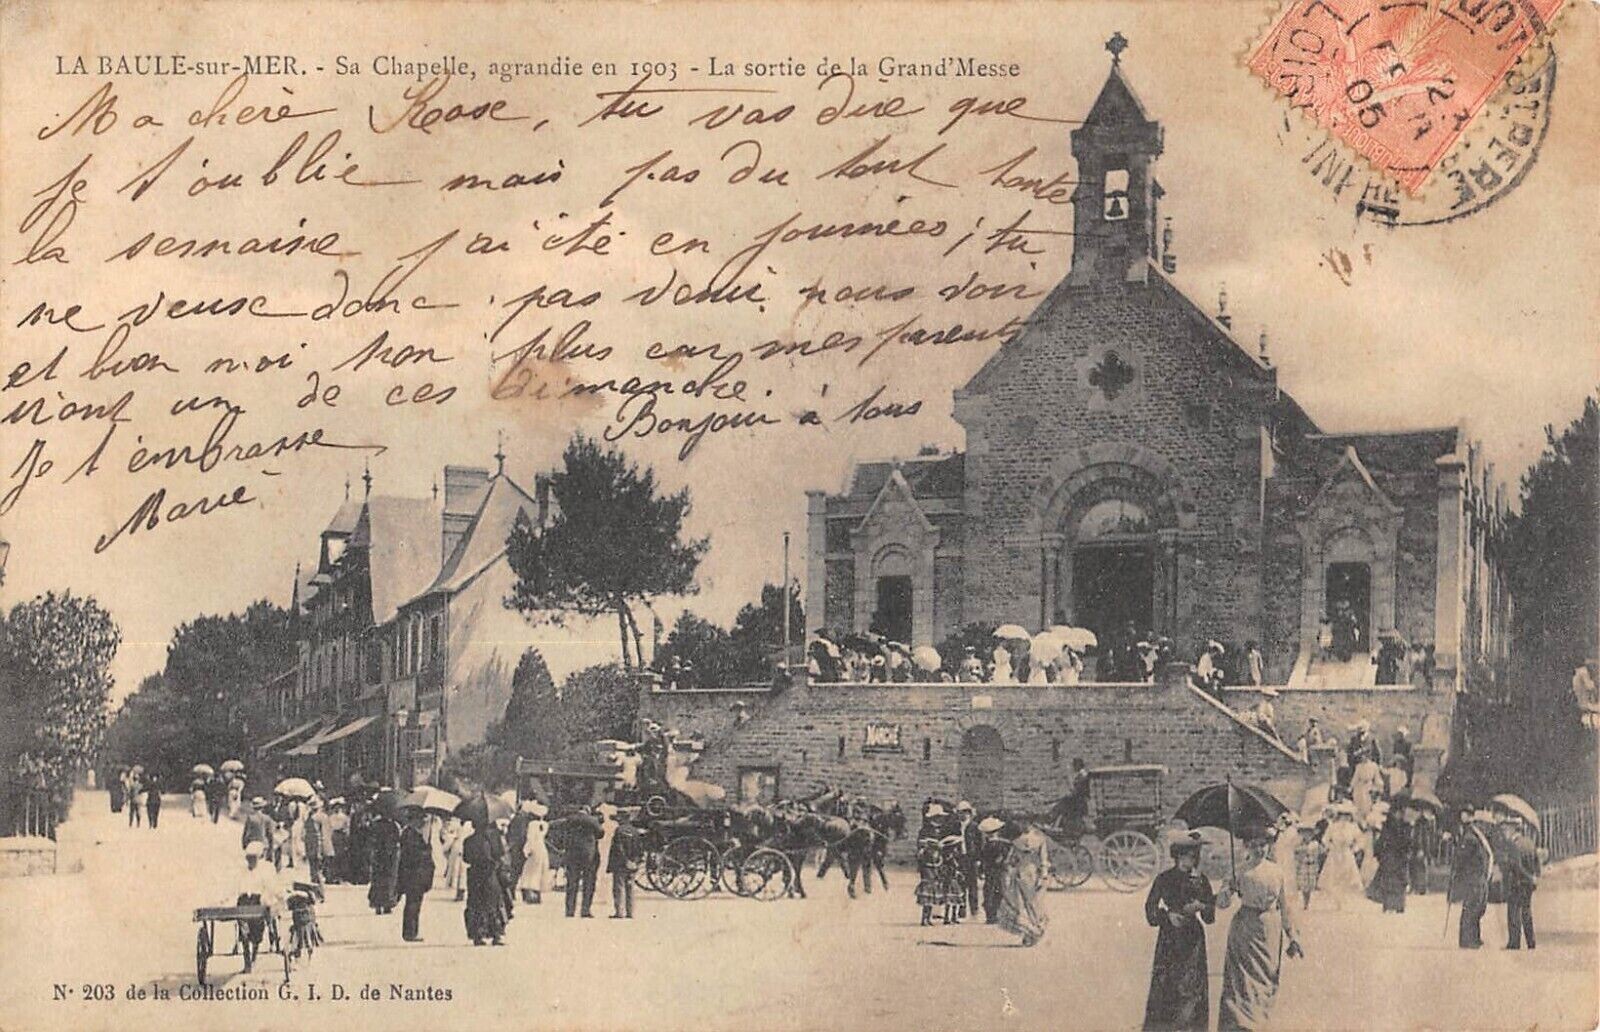 LA BAULE-sur-MER. - Sa Chapelle, agrandie en 1903 - La sortie de la Grand'Messe
Ma chère Rose, tu vas dire que
je t'oublie mais pas du tout toute
la semaine j'ai été en journées; tu
ne veuse donc pas venir nous voir
et bien moi non plus car mes parents
vront un de ces dimanche.
Bonjour à tous
Je t'embrasse
Marie
MARCHÉ
05
INFRE
N° 203 de la Collection G. I. D. de Nantes